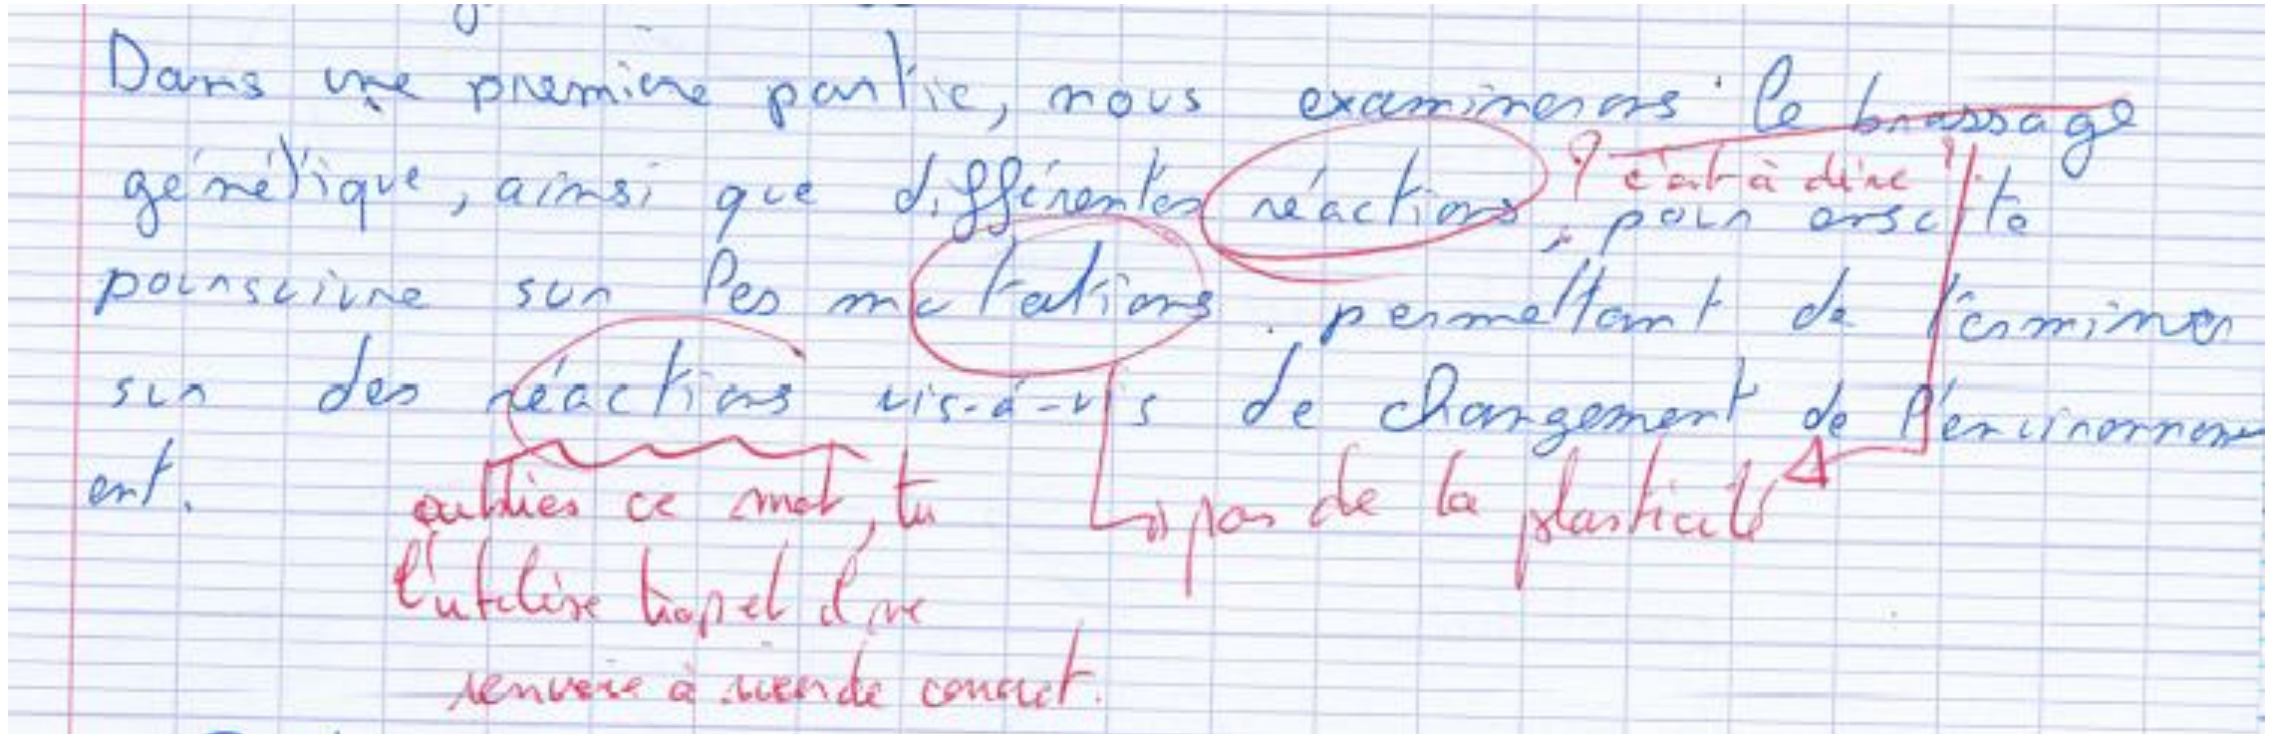 Dans une première partie, nous examinerons le brassage
génétique, ainsi que différentes réactions, pour ensuite
? c'est à dire ?
poursuivre sur les mutations permettant de terminer
sur des réactions vis-à-vis de changement de l'environnem
ent.
oublies ce mot, tu
l'utilise trop et il ne
renvoie à rien de concret.
pas de la plasticité